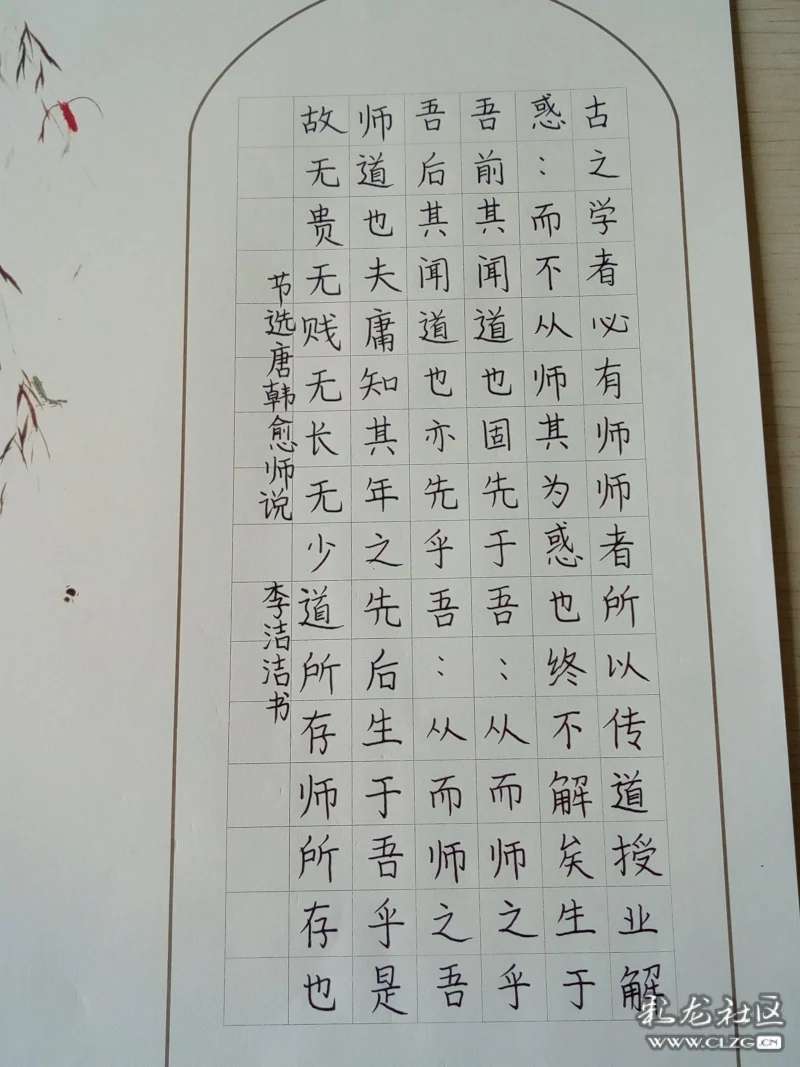 古之学者必有师师者所以传道授业解
惑：而不从师其为惑也终不解矣生于
吾前其闻道也固先于吾：从而师之乎
吾后其闻道也亦先乎吾：从而师之吾
师道也夫庸知其年之先后生于吾乎是
故无贵无贱无长无少道所存师所存也
节选唐韩愈师说 李洁洁书
札龙社区
WWW.CLZG.CN